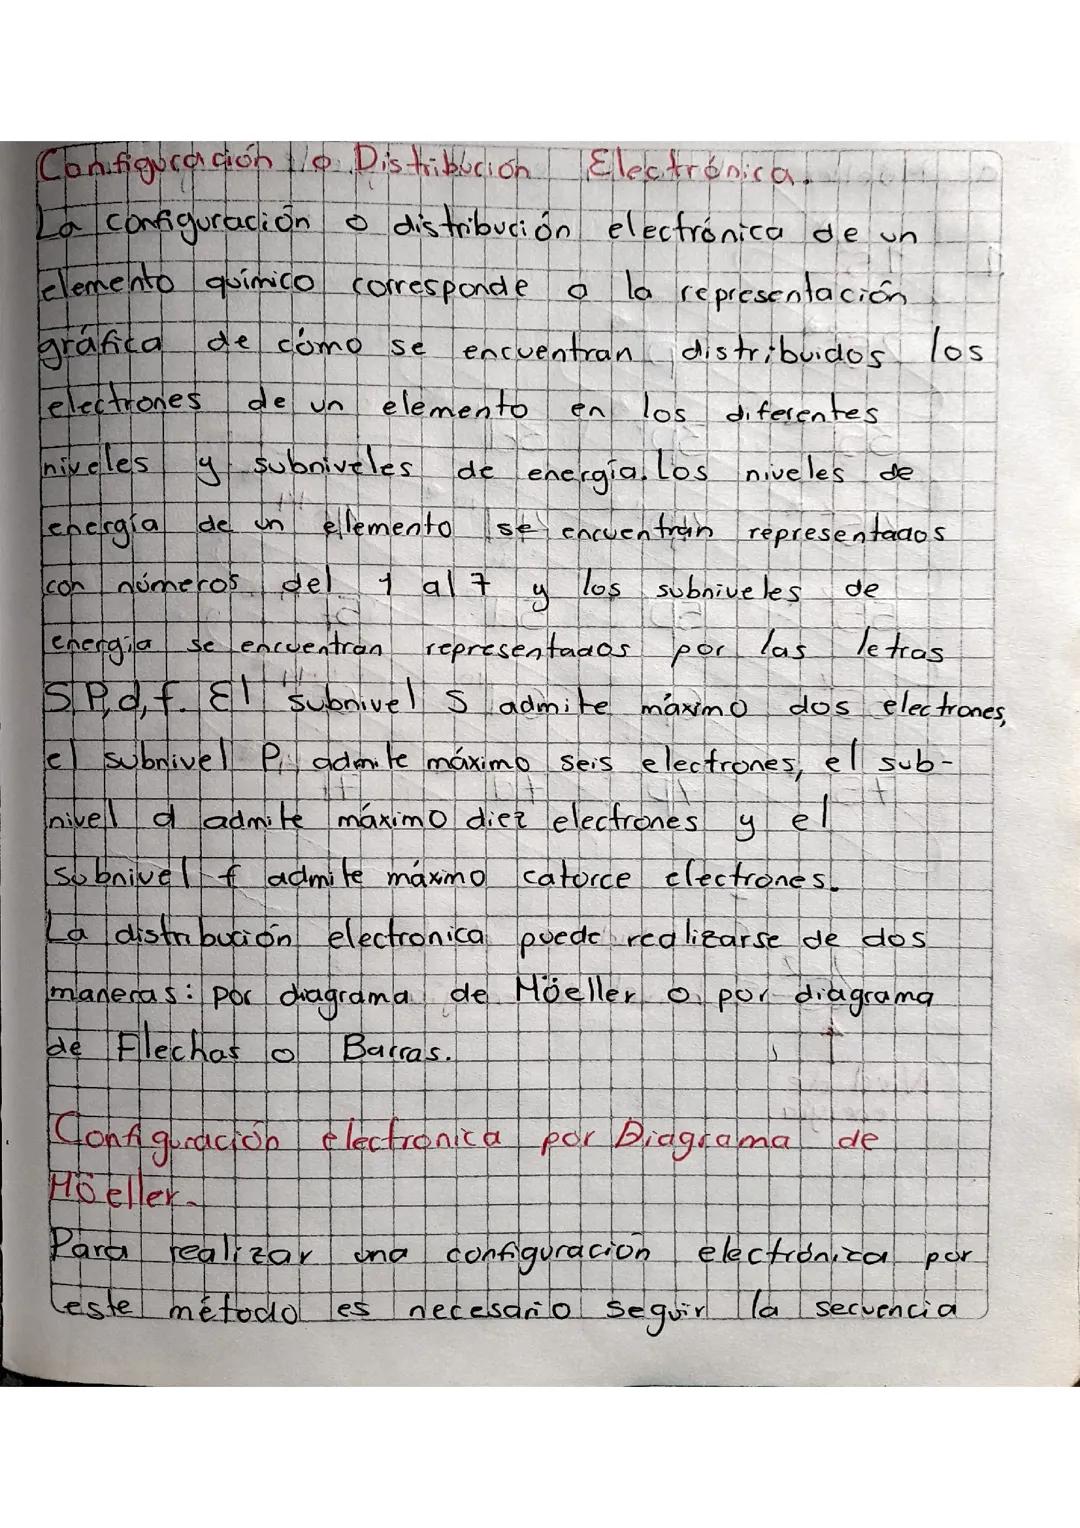 Configuración o Distribución Electrónica.
La configuración o distribución electrónica de un
elemento químico corresponde a la representación
gráfica de cómo se encuentran distribuidos los
electrones de un elemento en los diferentes
niveles y subniveles de energía. Los niveles de
energía de un elemento se encuentran representados
con números del 1 al 7 y los subniveles de
energía se encuentran representados por las letras
S,P,d,f. El subnivel S admite máximo dos electrones,
el subnivel P, admite máximo seis electrones, el sub-
nivel d admite máximo diez electrones y el
subnivel f admite máximo catorce electrones.
La distribución electronica puede realizarse de dos
maneras: por diagrama de Höeller o por diagrama
de Flechas o Barras.
Configuración electronica por Diagrama de
Höeller.
Para realizar una configuración electrónica por
este método es necesario seguir la secuencia